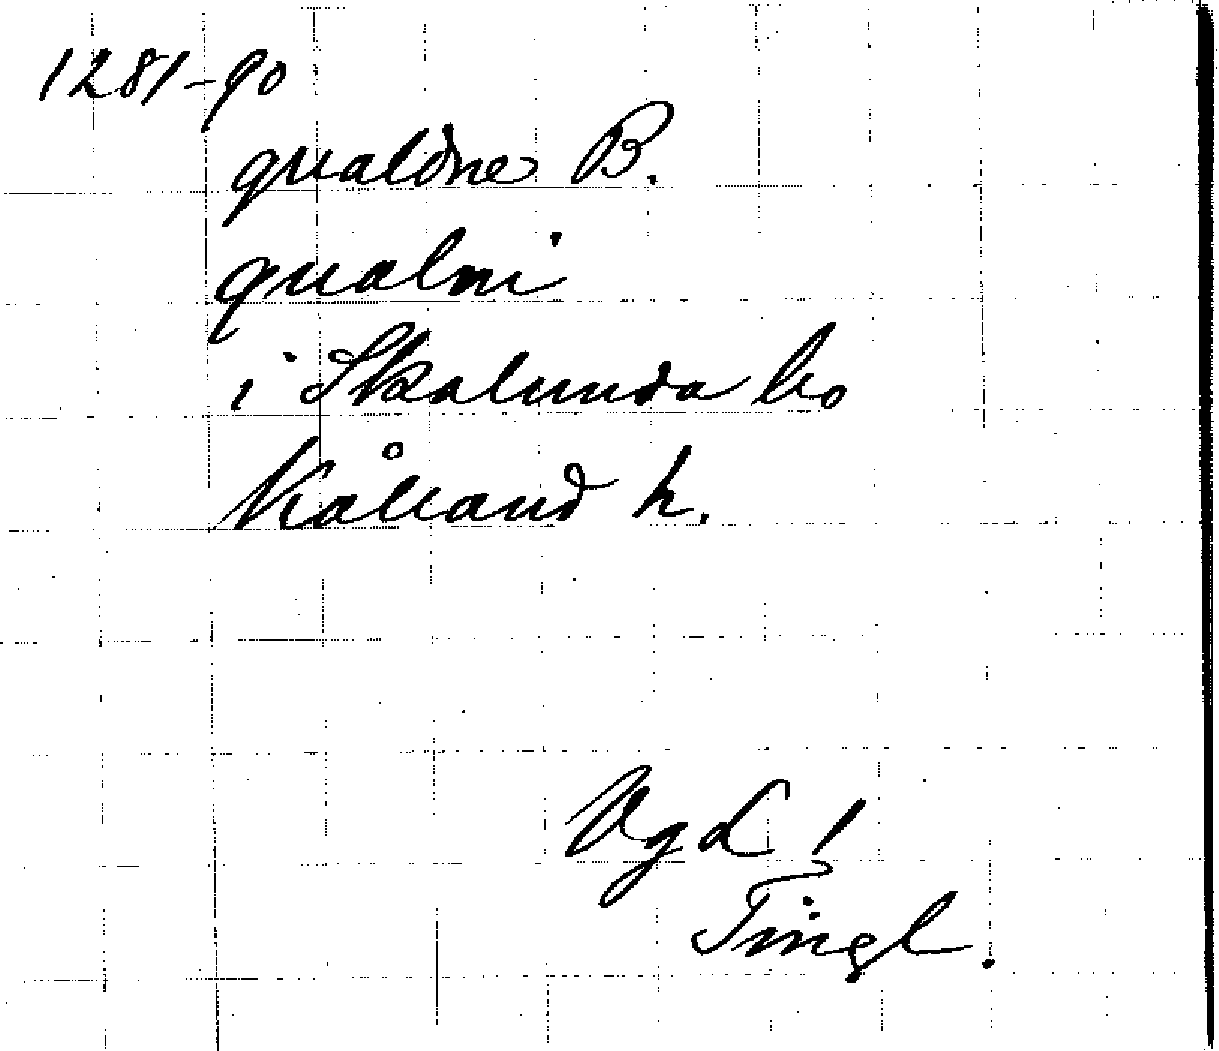 1281-90
qualdne B.
qualni
i Skalunda bo
Kålland h.
VgL 1
Tingl.